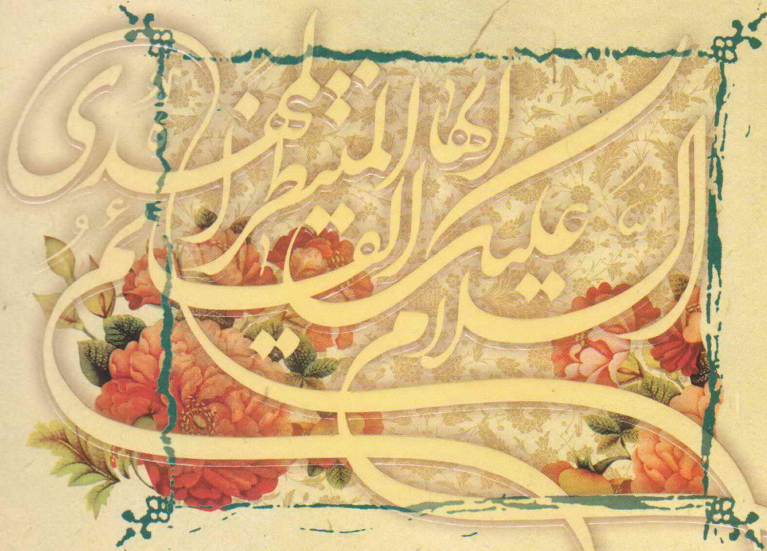 السلام علیک ایها القائم المنتظر المهدی